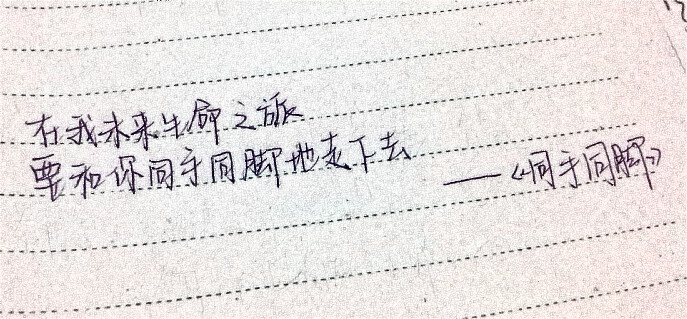 在我未来生命之旅
要和你同手同脚地走下去
——《同手同脚》